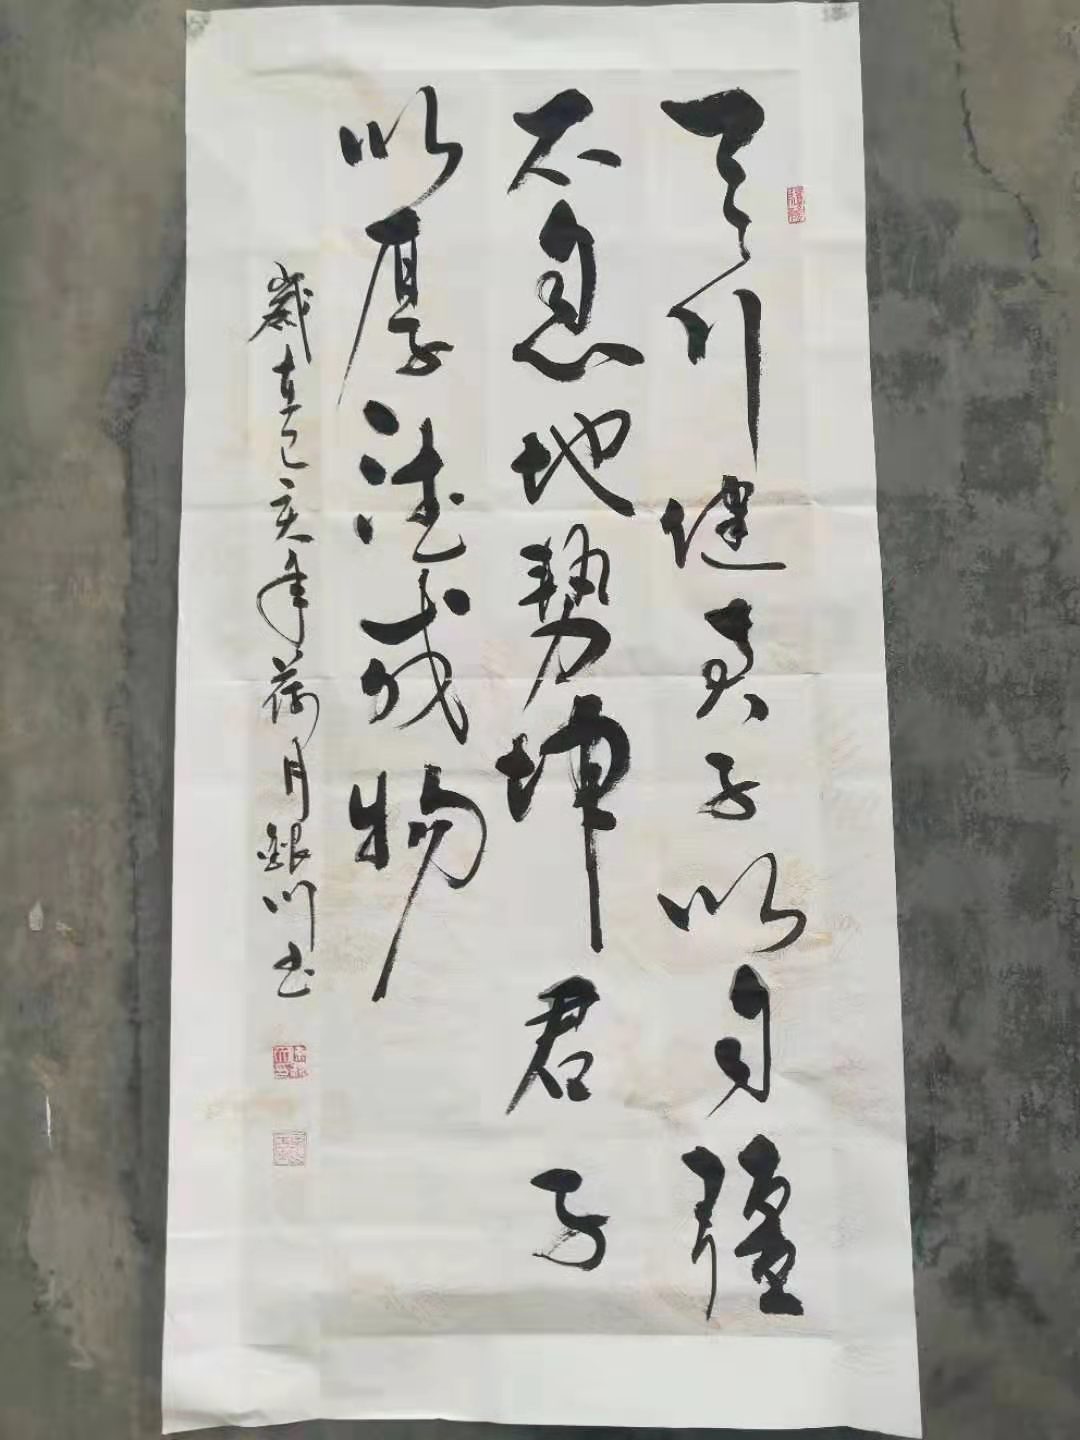 天行健君子以自彊
不息地勢坤君子
以厚德载物
歲在己亥年荷月銀川书